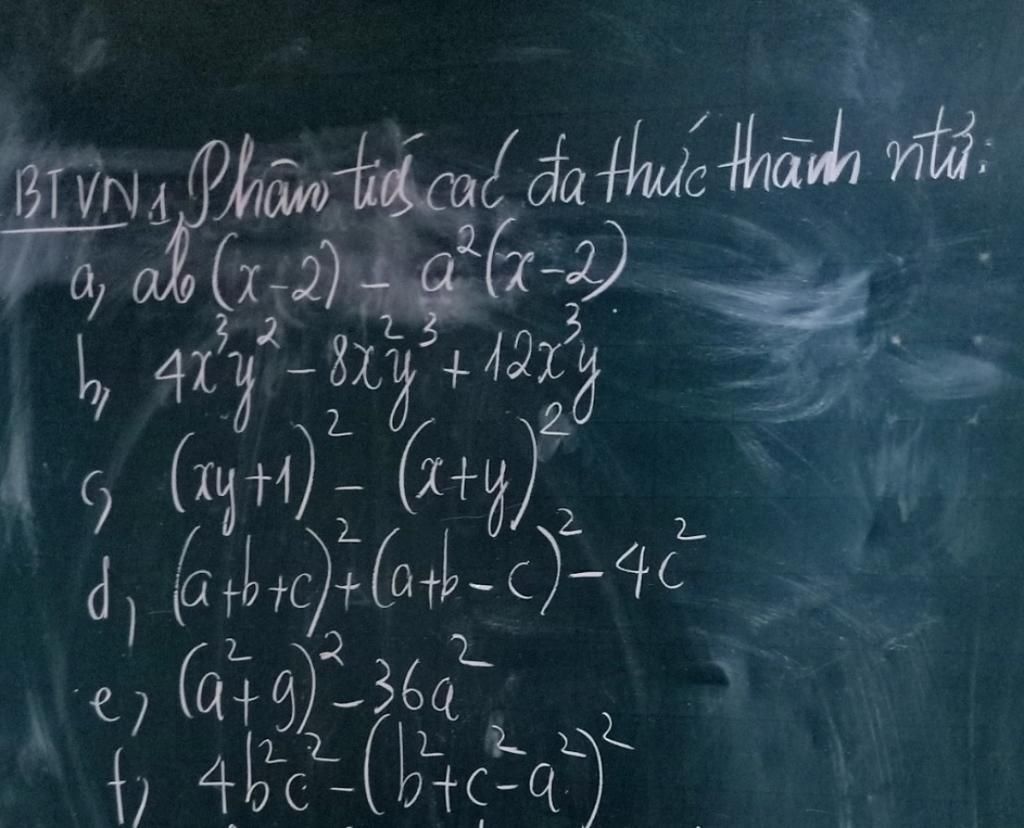 BTVN1, Phân tích các đa thức thành ntử:
a, ab(x-2) - a²(x-2)
b, 4x³y² - 8x²y³ + 12x³y
c, (xy+1)² - (x+y)²
d, (a+b+c)² + (a+b-c)² - 4c²
e, (a²+9)² - 36a²
f, 4b²c² - (b²+c²-a²)²